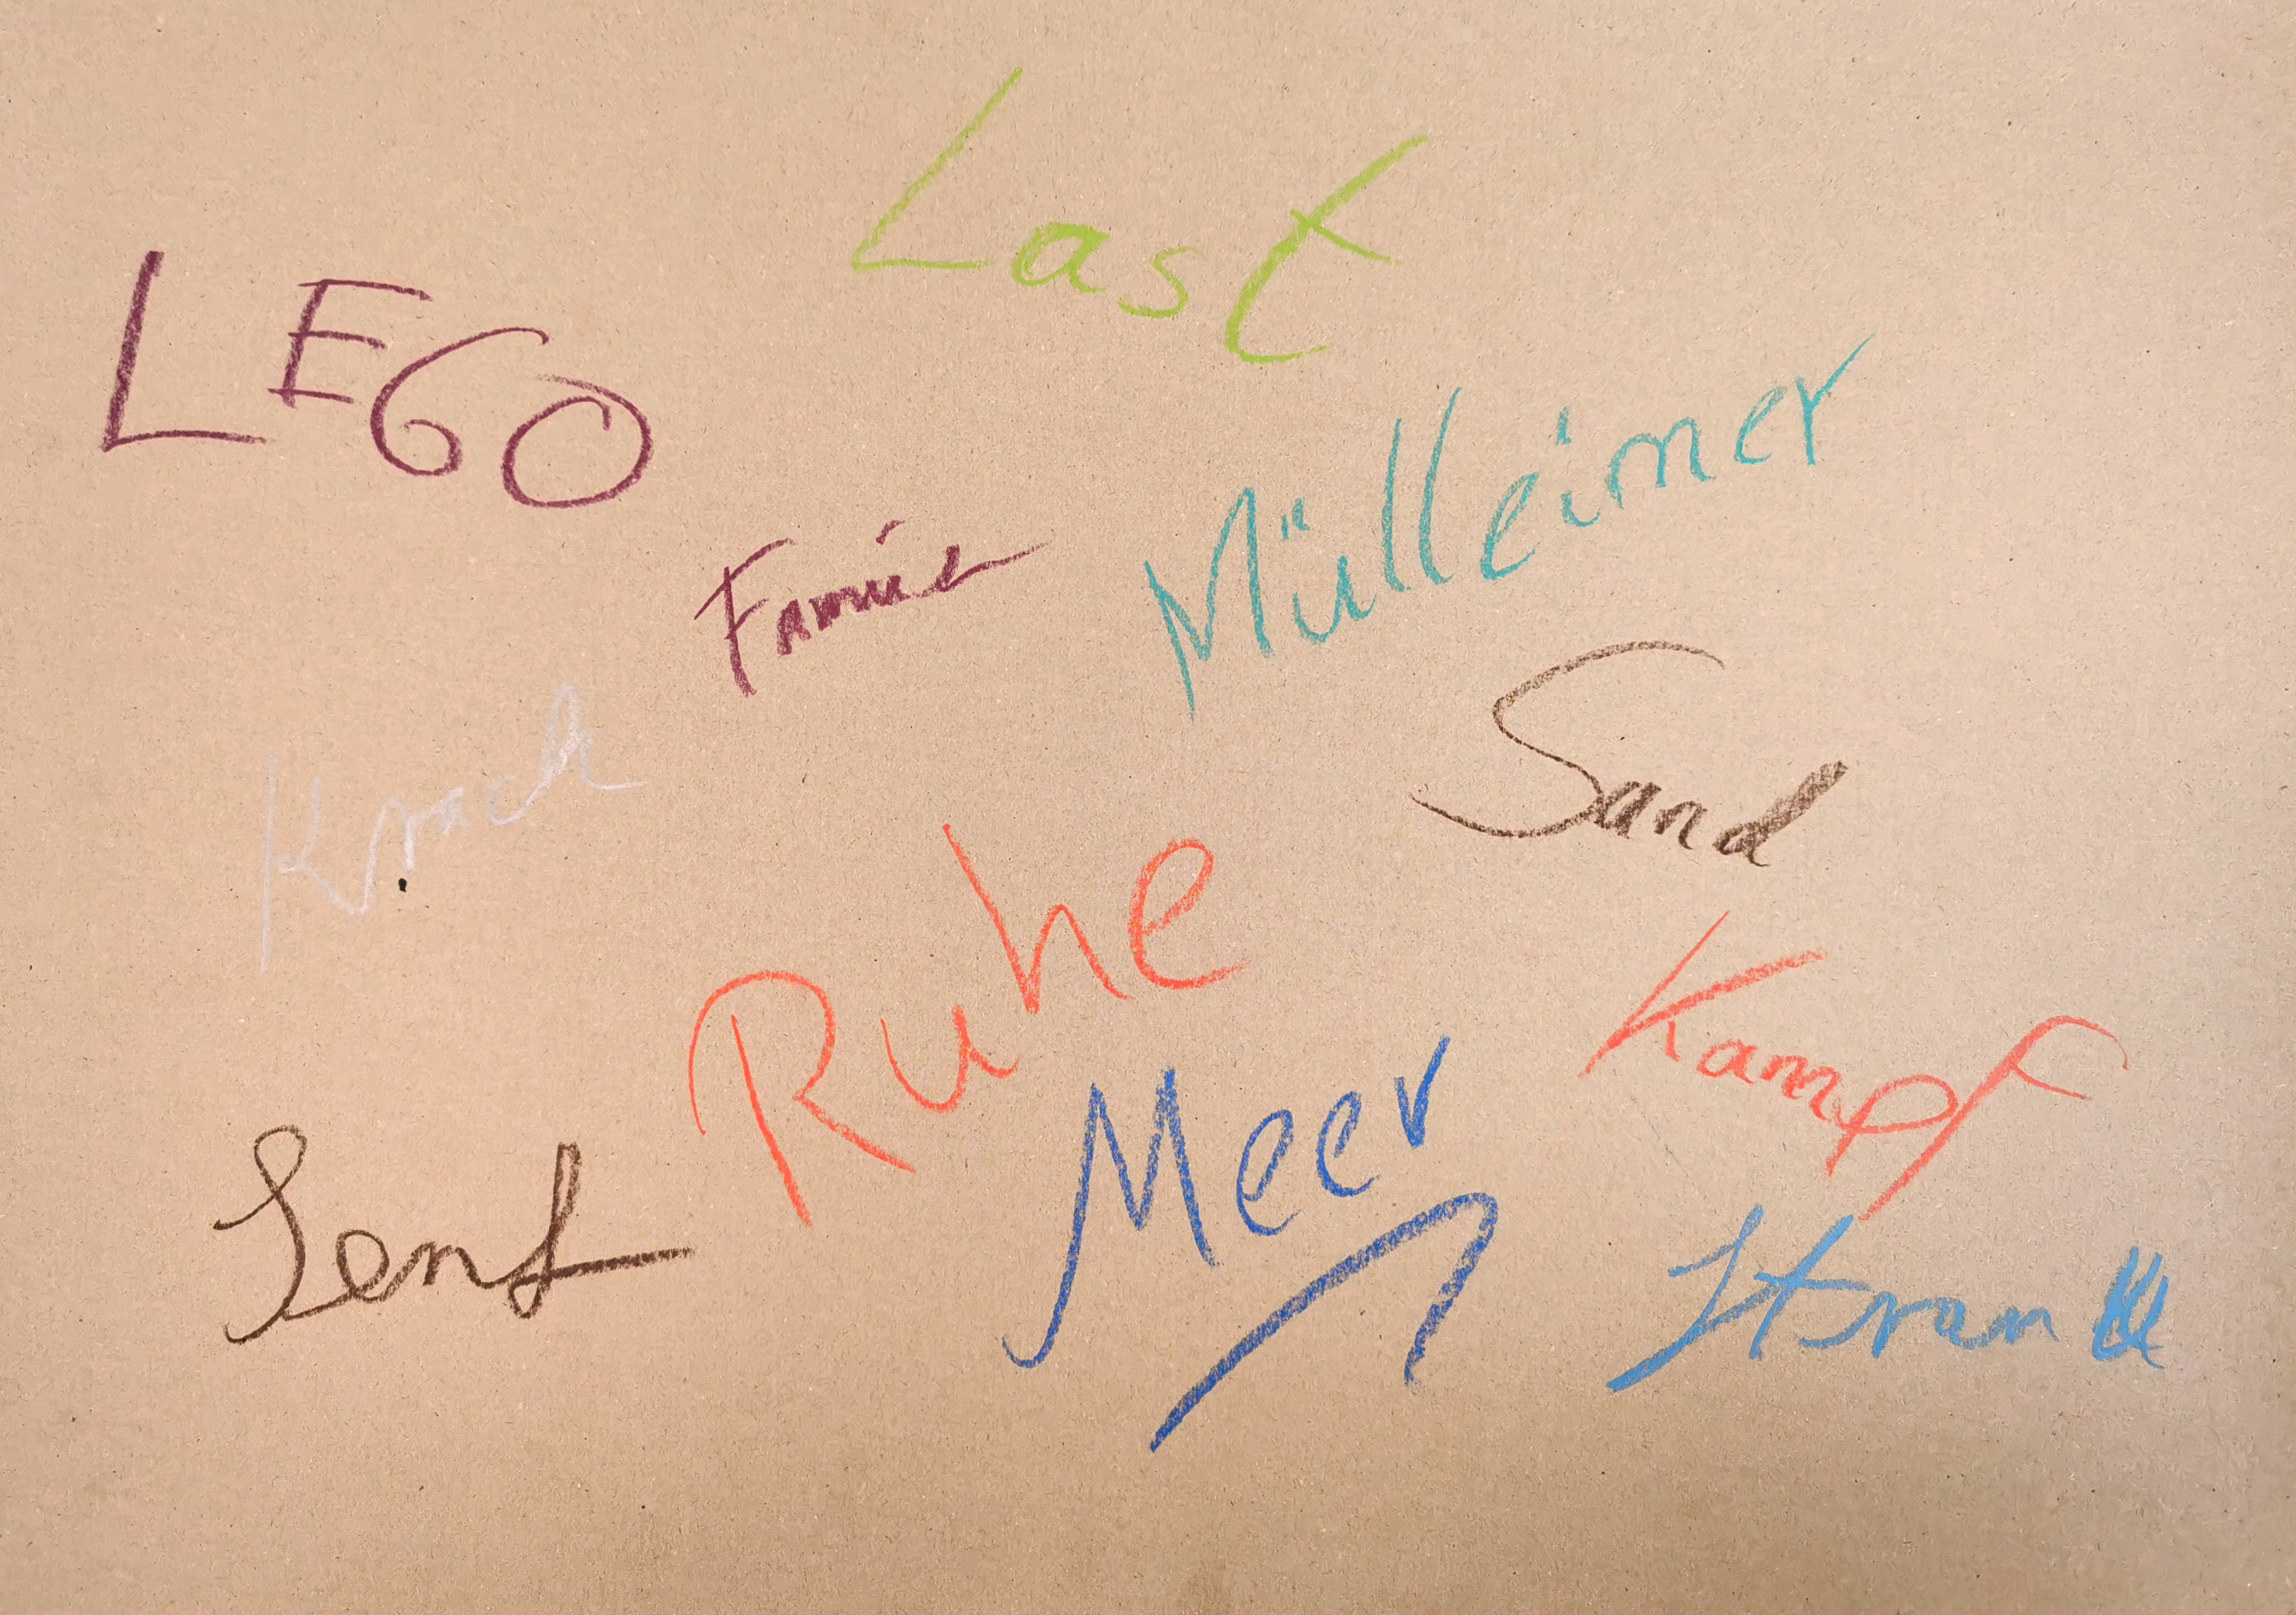 Last
LEGO
Mülleimer
Famie
Sand
Krach
Ruhe
Kampf
Meer
Senf
Strand